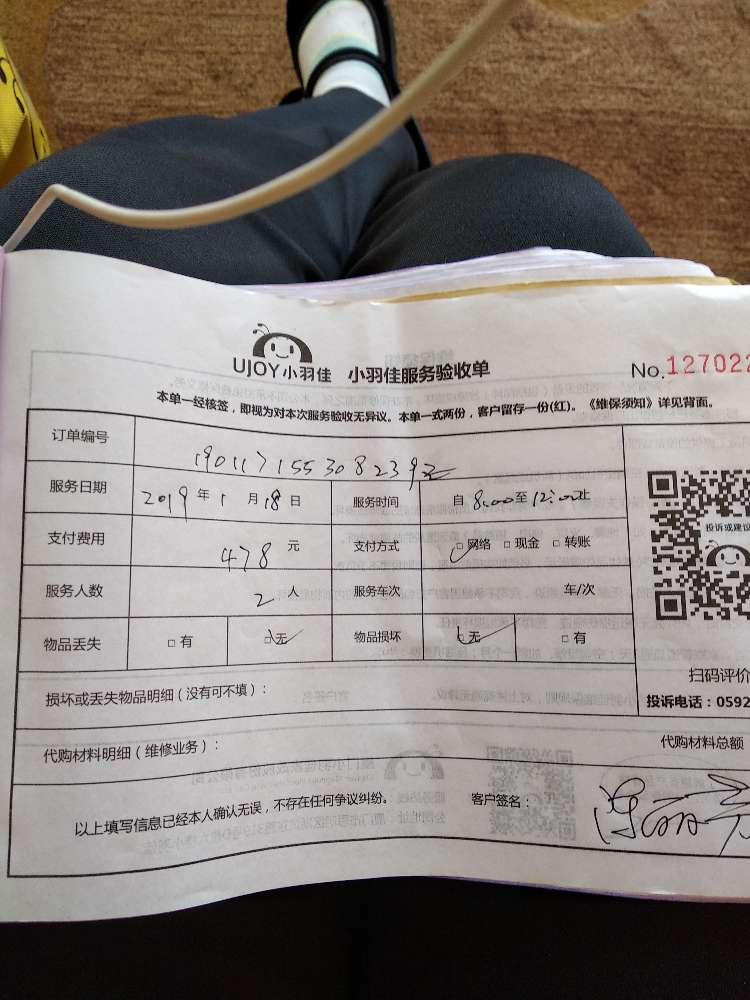 UJOY小羽佳 小羽佳服务验收单 No.127022
本单一经核签，即视为对本次服务验收无异议。本单一式两份，客户留存一份(红)。《维保须知》详见背面。
订单编号 190117155308239
服务日期 2019年1月18日 服务时间 自8:00至12:00止
支付费用 478元 支付方式 □网络 □现金 □转账
服务人数 2人 服务车次 车/次
物品丢失 □有 □无 物品损坏 □无 □有
投诉或建议
扫码评价
投诉电话：0592
损坏或丢失物品明细（没有可不填）：
代购材料明细（维修业务）： 代购材料总额
以上填写信息已经本人确认无误，不存在任何争议纠纷。 客户签名：